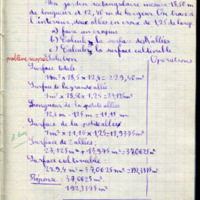 Un jardin rectangulaire mesure 18,50 m
de longueur et 12,40 m de largeur. On trace à
l'intérieur 2 allées en croix de 1,25 de large.
a) faire un croquis
b) Calculer la surface des allées
c) Calculer la surface cultivable
Solution Opérations
Surface totale
1m² x 18,5 x 12,4 = 229,40 m²
Surface de la grande allée
1m² x 18,5 x 1,25 = 23,125m²
Longueur de la petite allée
Surface de la petite allée
1m² x 11,15 x 1,25 = 13,9375m²
Surface des 2 allées
23,125m² + 13,9375 = 37,0625m²
Surface cultivable
229,4m² - 37,0625m² = 192,3375m²
Réponse 37,0625m²
192,3375m²